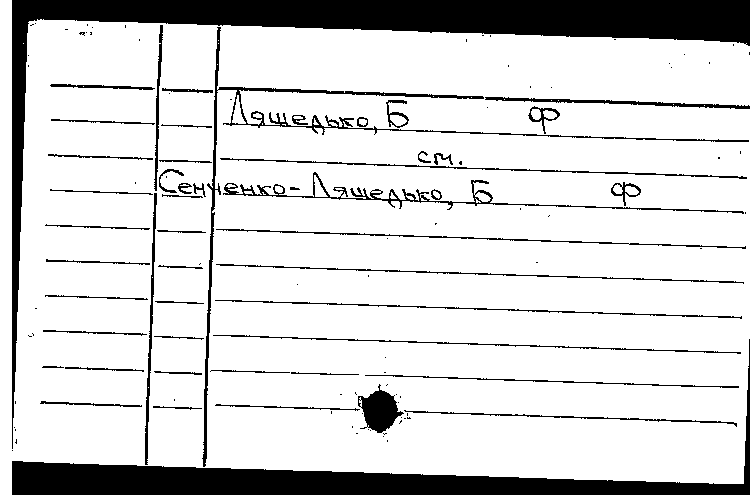 Ляшедько, Б Ф
см.
Сенченко-Ляшедько, Б Ф